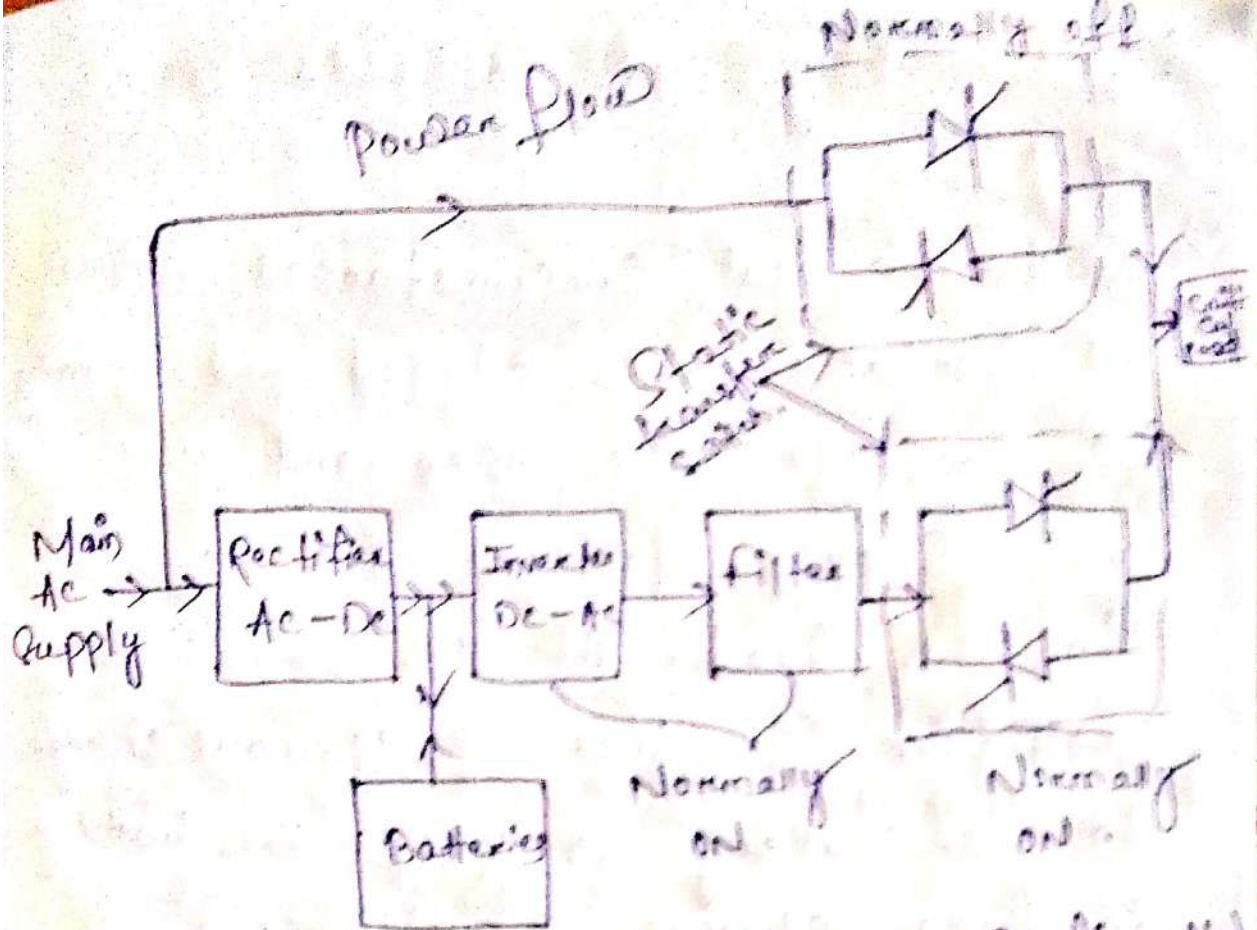 Normally off
Power flow
Static
transfer
switch.
Main
AC
Supply
Rectifier
AC-DC
Inverter
DC-AC
filter
Batteries
Normally
ON.
Normally
ON.